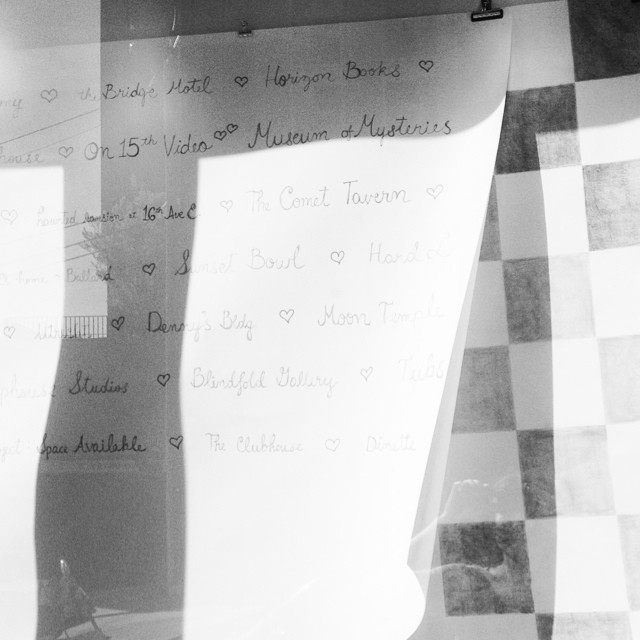 the Bridge Motel ♡ Horizon Books ♡
♡ On 15th Video ♡♡ Museum of Mysteries
Haunted mansion at 16th Ave E ♡ The Comet Tavern ♡
♡ Sunset Bowl ♡
♡ Denny's Bldg ♡ Moon Temple
Studios ♡ Blindfold Gallery ♡ Tubs
Space Available ♡ The Clubhouse ♡ Dinette